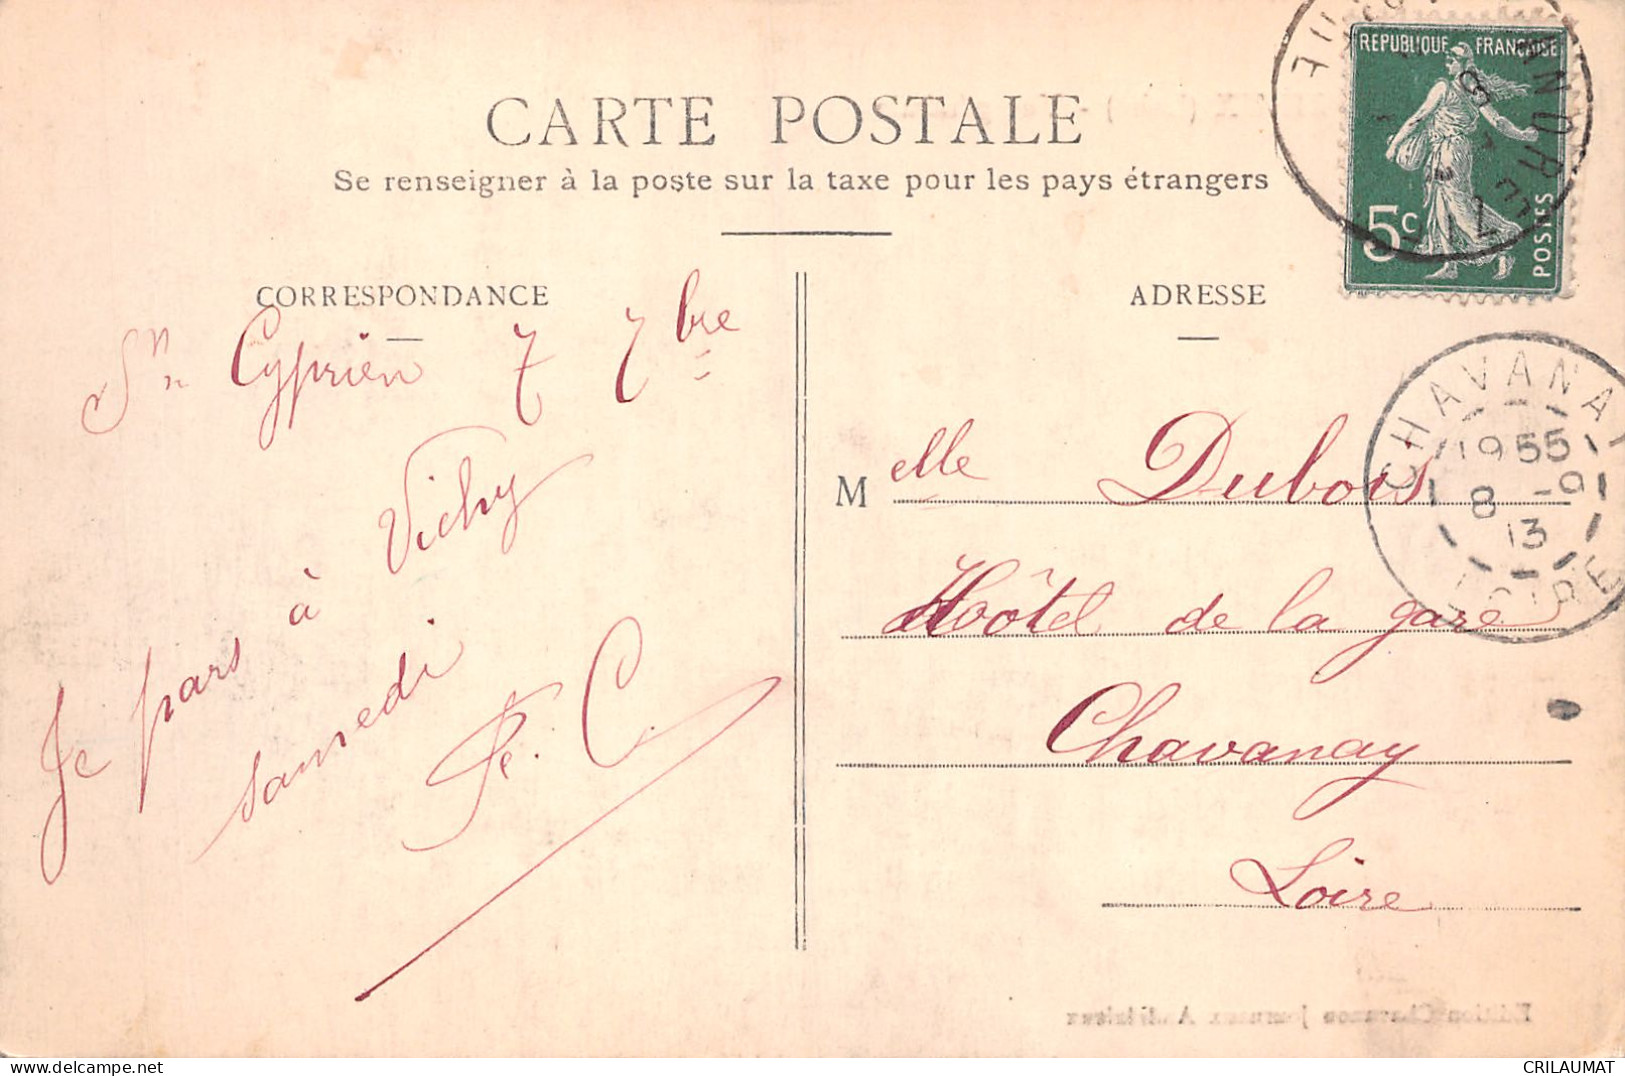 CARTE POSTALE
Se renseigner à la poste sur la taxe pour les pays étrangers
REPUBLIQUE FRANÇAISE
5c POSTES
CORRESPONDANCE
ADRESSE
Cyprien 7 7bre
Je pars à Vichy
samedi
C.
Melle Dubois
Hôtel de la gare
Chavanay
Loire
CHAVANAY
1955
8 -9
13
LOIRE
Edition Chavanon Journaux Andrézieux
CRILAUMAT